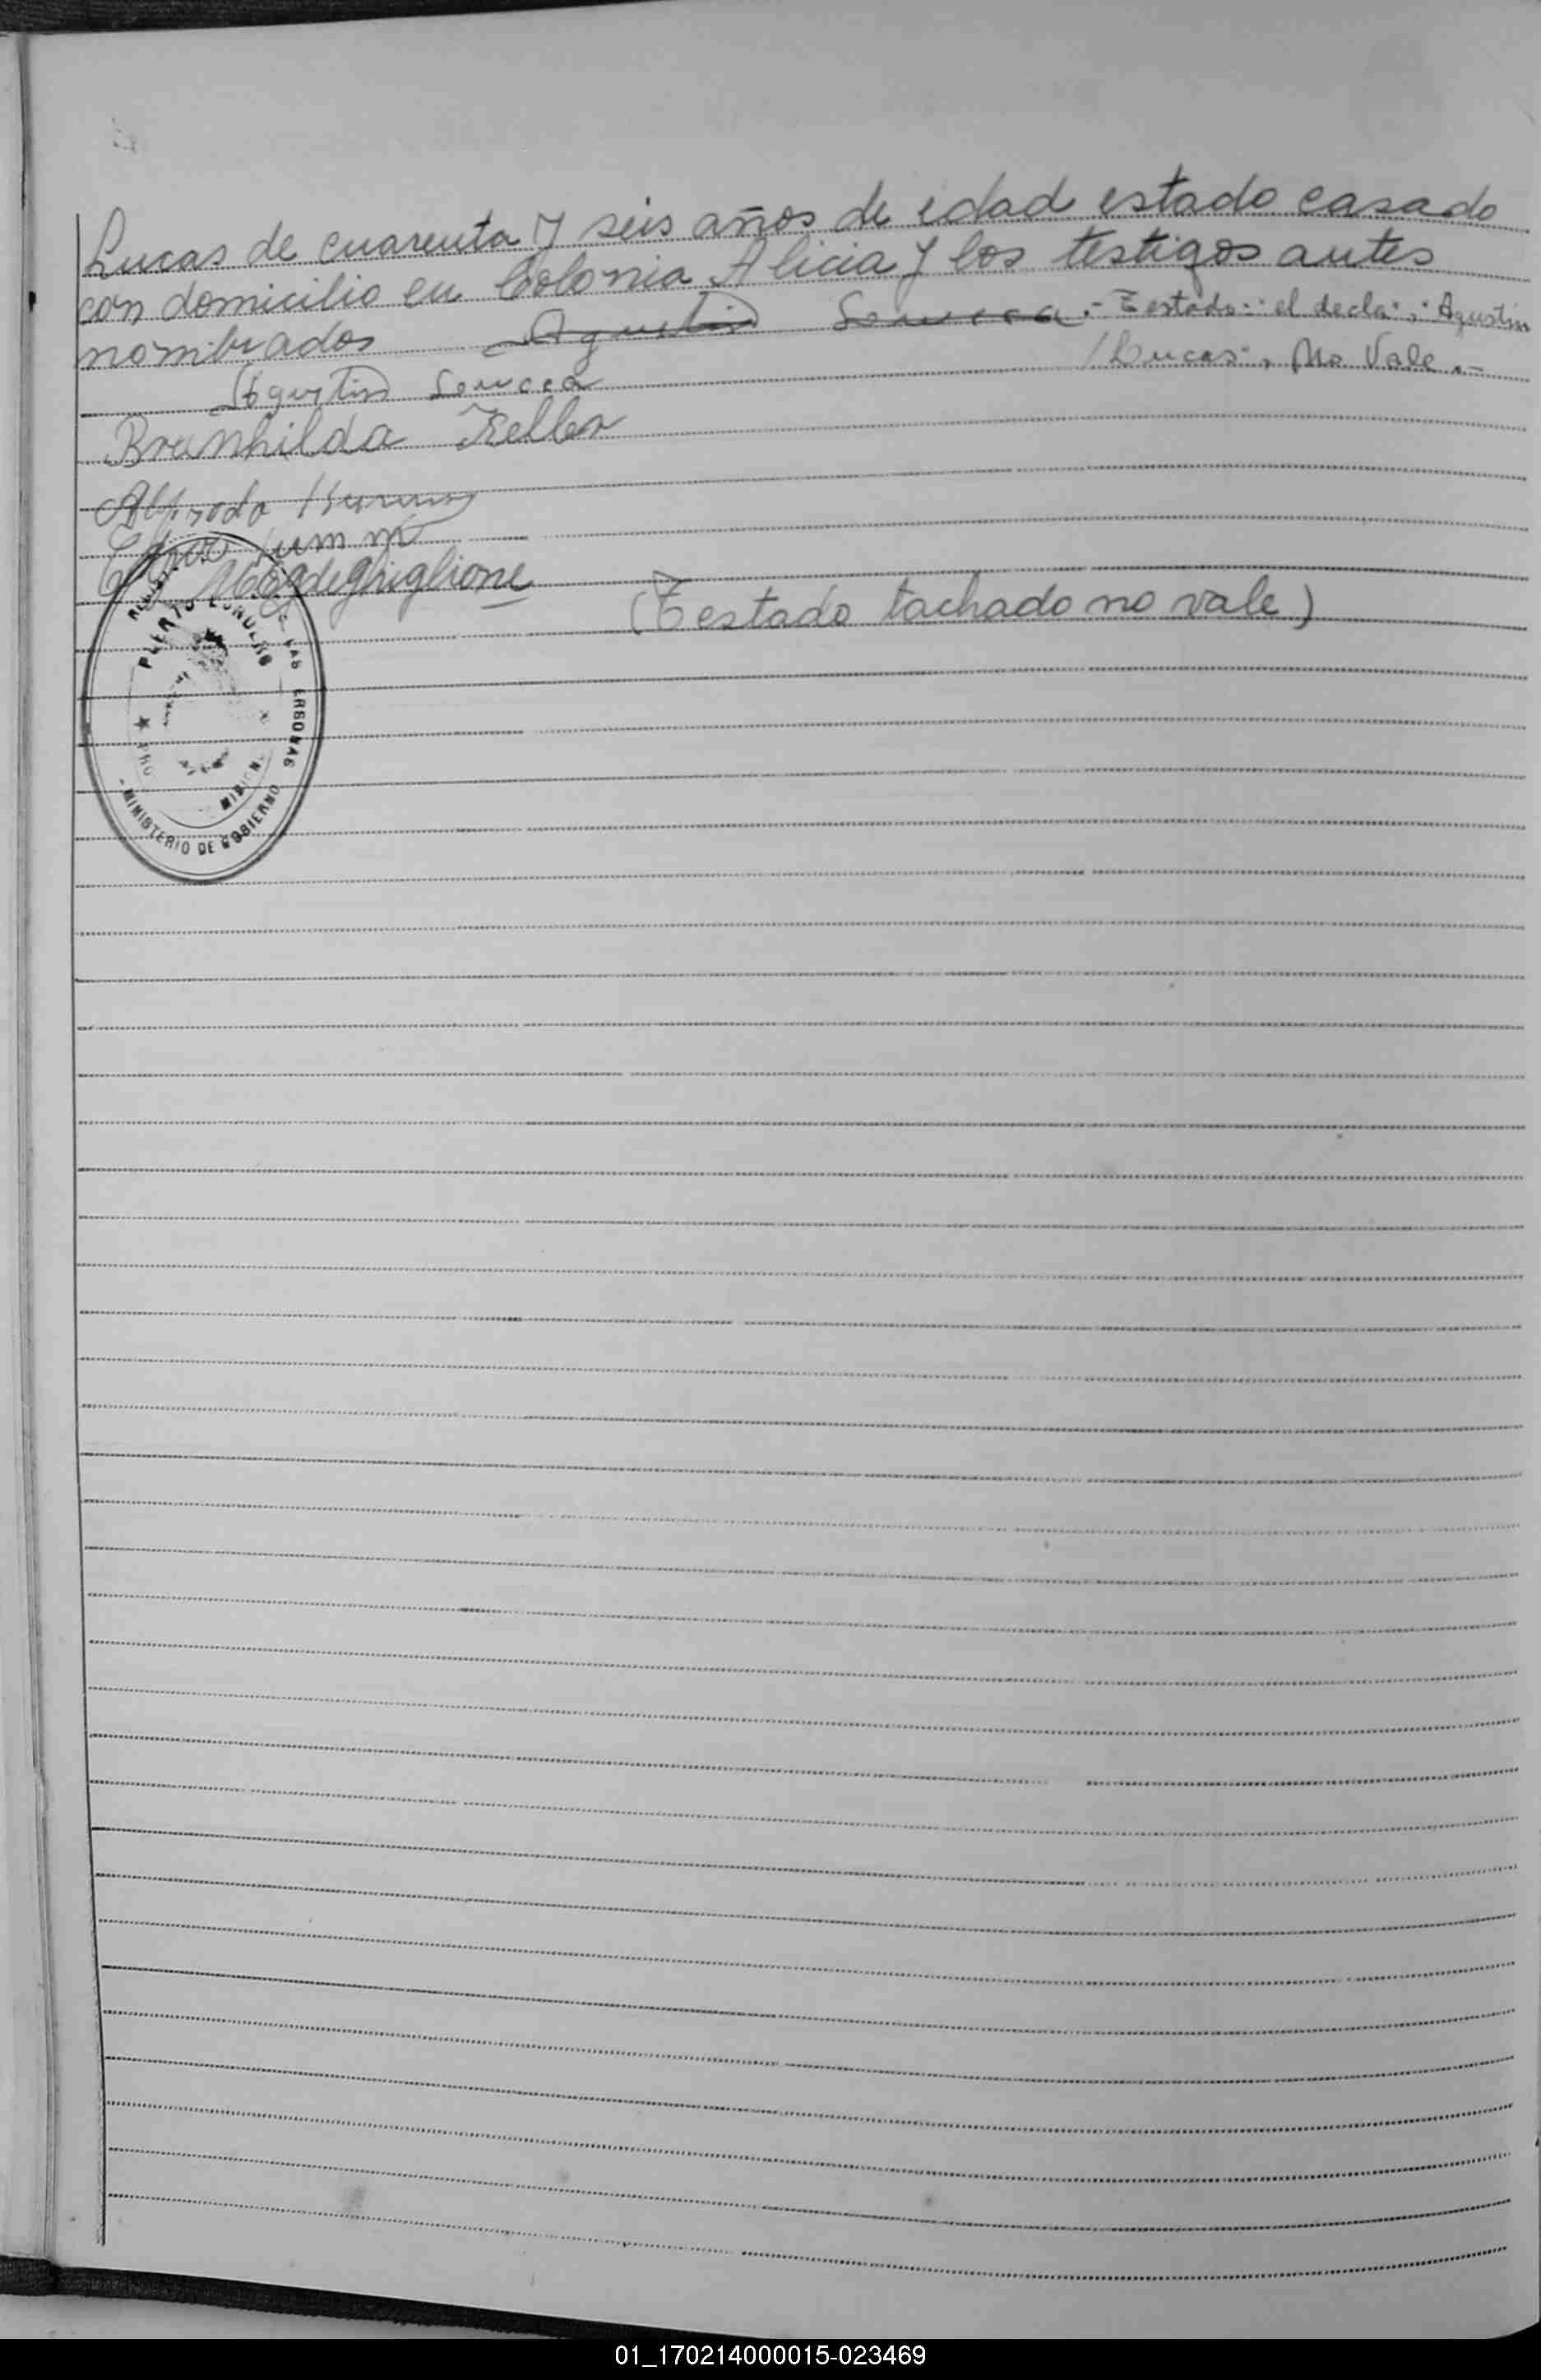 Lucas de cuarenta y seis años de edad estado casado
con domicilio en Colonia Alicia y los testigos antes
nombrados Agustin :- Testado: "el decla", "Agustin
/Lucas", No Vale.-
Agustin
Brunhilda Keller
Alfredo
(Testado tachado no vale)
PUERTO
MINISTERIO DE GOBIERNO
01_170214000015-023469